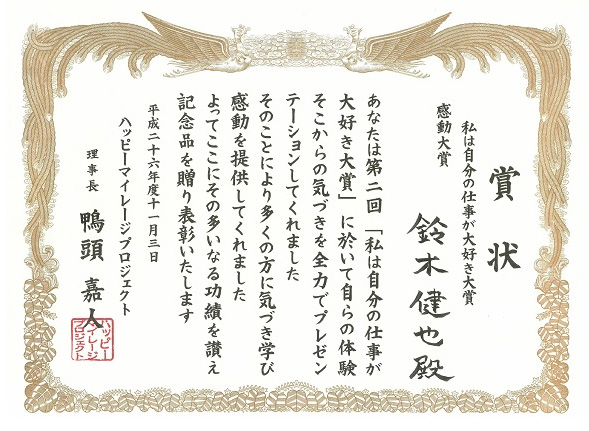 賞状
私は自分の仕事が大好き大賞
感動大賞
鈴木健也殿
あなたは第二回「私は自分の仕事が
大好き大賞」に於いて自らの体験
そこからの気づきを全力でプレゼン
テーションしてくれました
そのことにより多くの方に気づき学び
感動を提供してくれました
よってここにその多いなる功績を讃え
記念品を贈り表彰いたします
平成二十六年度十一月三日
ハッピーマイレージプロジェクト
理事長 鴨頭嘉人
ハッピー
マイレージ
プロジェクト